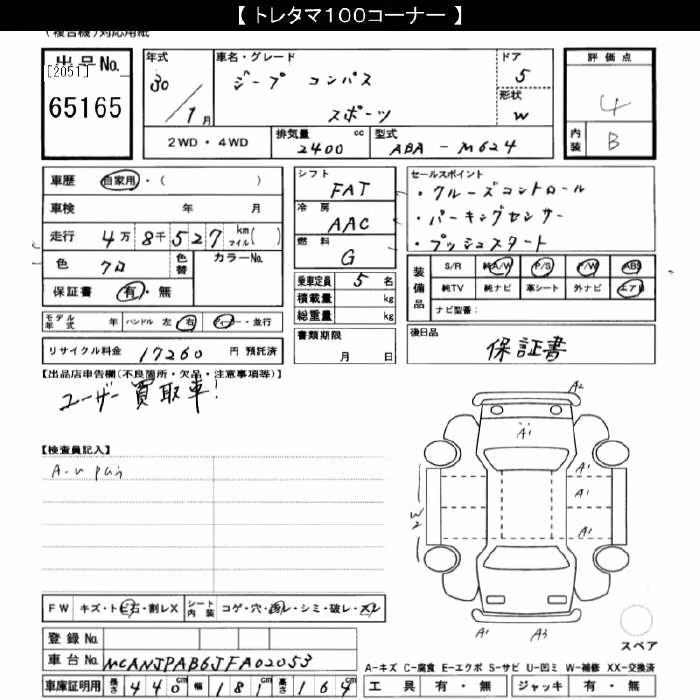 【 トレタマ100コーナー 】
(複合機)対応用紙
出品No.
[2051]
65165
年式
30/1月
車名・グレード
ジープ コンパス
スポーツ
ドア
5
形状
W
評価点
4
内装
B
2WD・4WD
排気量 2400 cc
型式 ABA-M624
車歴 自家用・( )
車検 年 月
走行 4万8千527 km マイル( )
色 クロ 色替 カラーNo.
保証書 有・無
モデル年式 年 ハンドル 左 右 ディーラー・並行
リサイクル料金 17260 円 預託済
シフト
FAT
冷房
AAC
燃料
G
乗車定員 5 名
積載量 kg
総重量 kg
書類期限
月 日
セールスポイント
・クルーズコントロール
・パーキングセンサー
・プッシュスタート
装備品
S/R 純A/W P/S P/W ABS
純TV 純ナビ 革シート 外ナビ エアB
ナビ型番:
後日品
保証書
【出品店申告欄(不良箇所・欠品・注意事項等)】
ユーザー買取車!
【検査員記入】
A-U
A2
A1
A1
A1
A1
W2
A1 A3
スペア
FW キズ・トビ石・割レX シート内装 コゲ・穴・切レ・シミ・破レ・スレ
登録No.
車台No. MCANJPAB6JFA02053
車庫証明用 長さ 440 cm 幅 181 cm 高さ 164 cm
A-キズ C-腐食 E-エクボ S-サビ U-凹ミ W-補修 XX-交換済
工具 有・無 ジャッキ 有・無